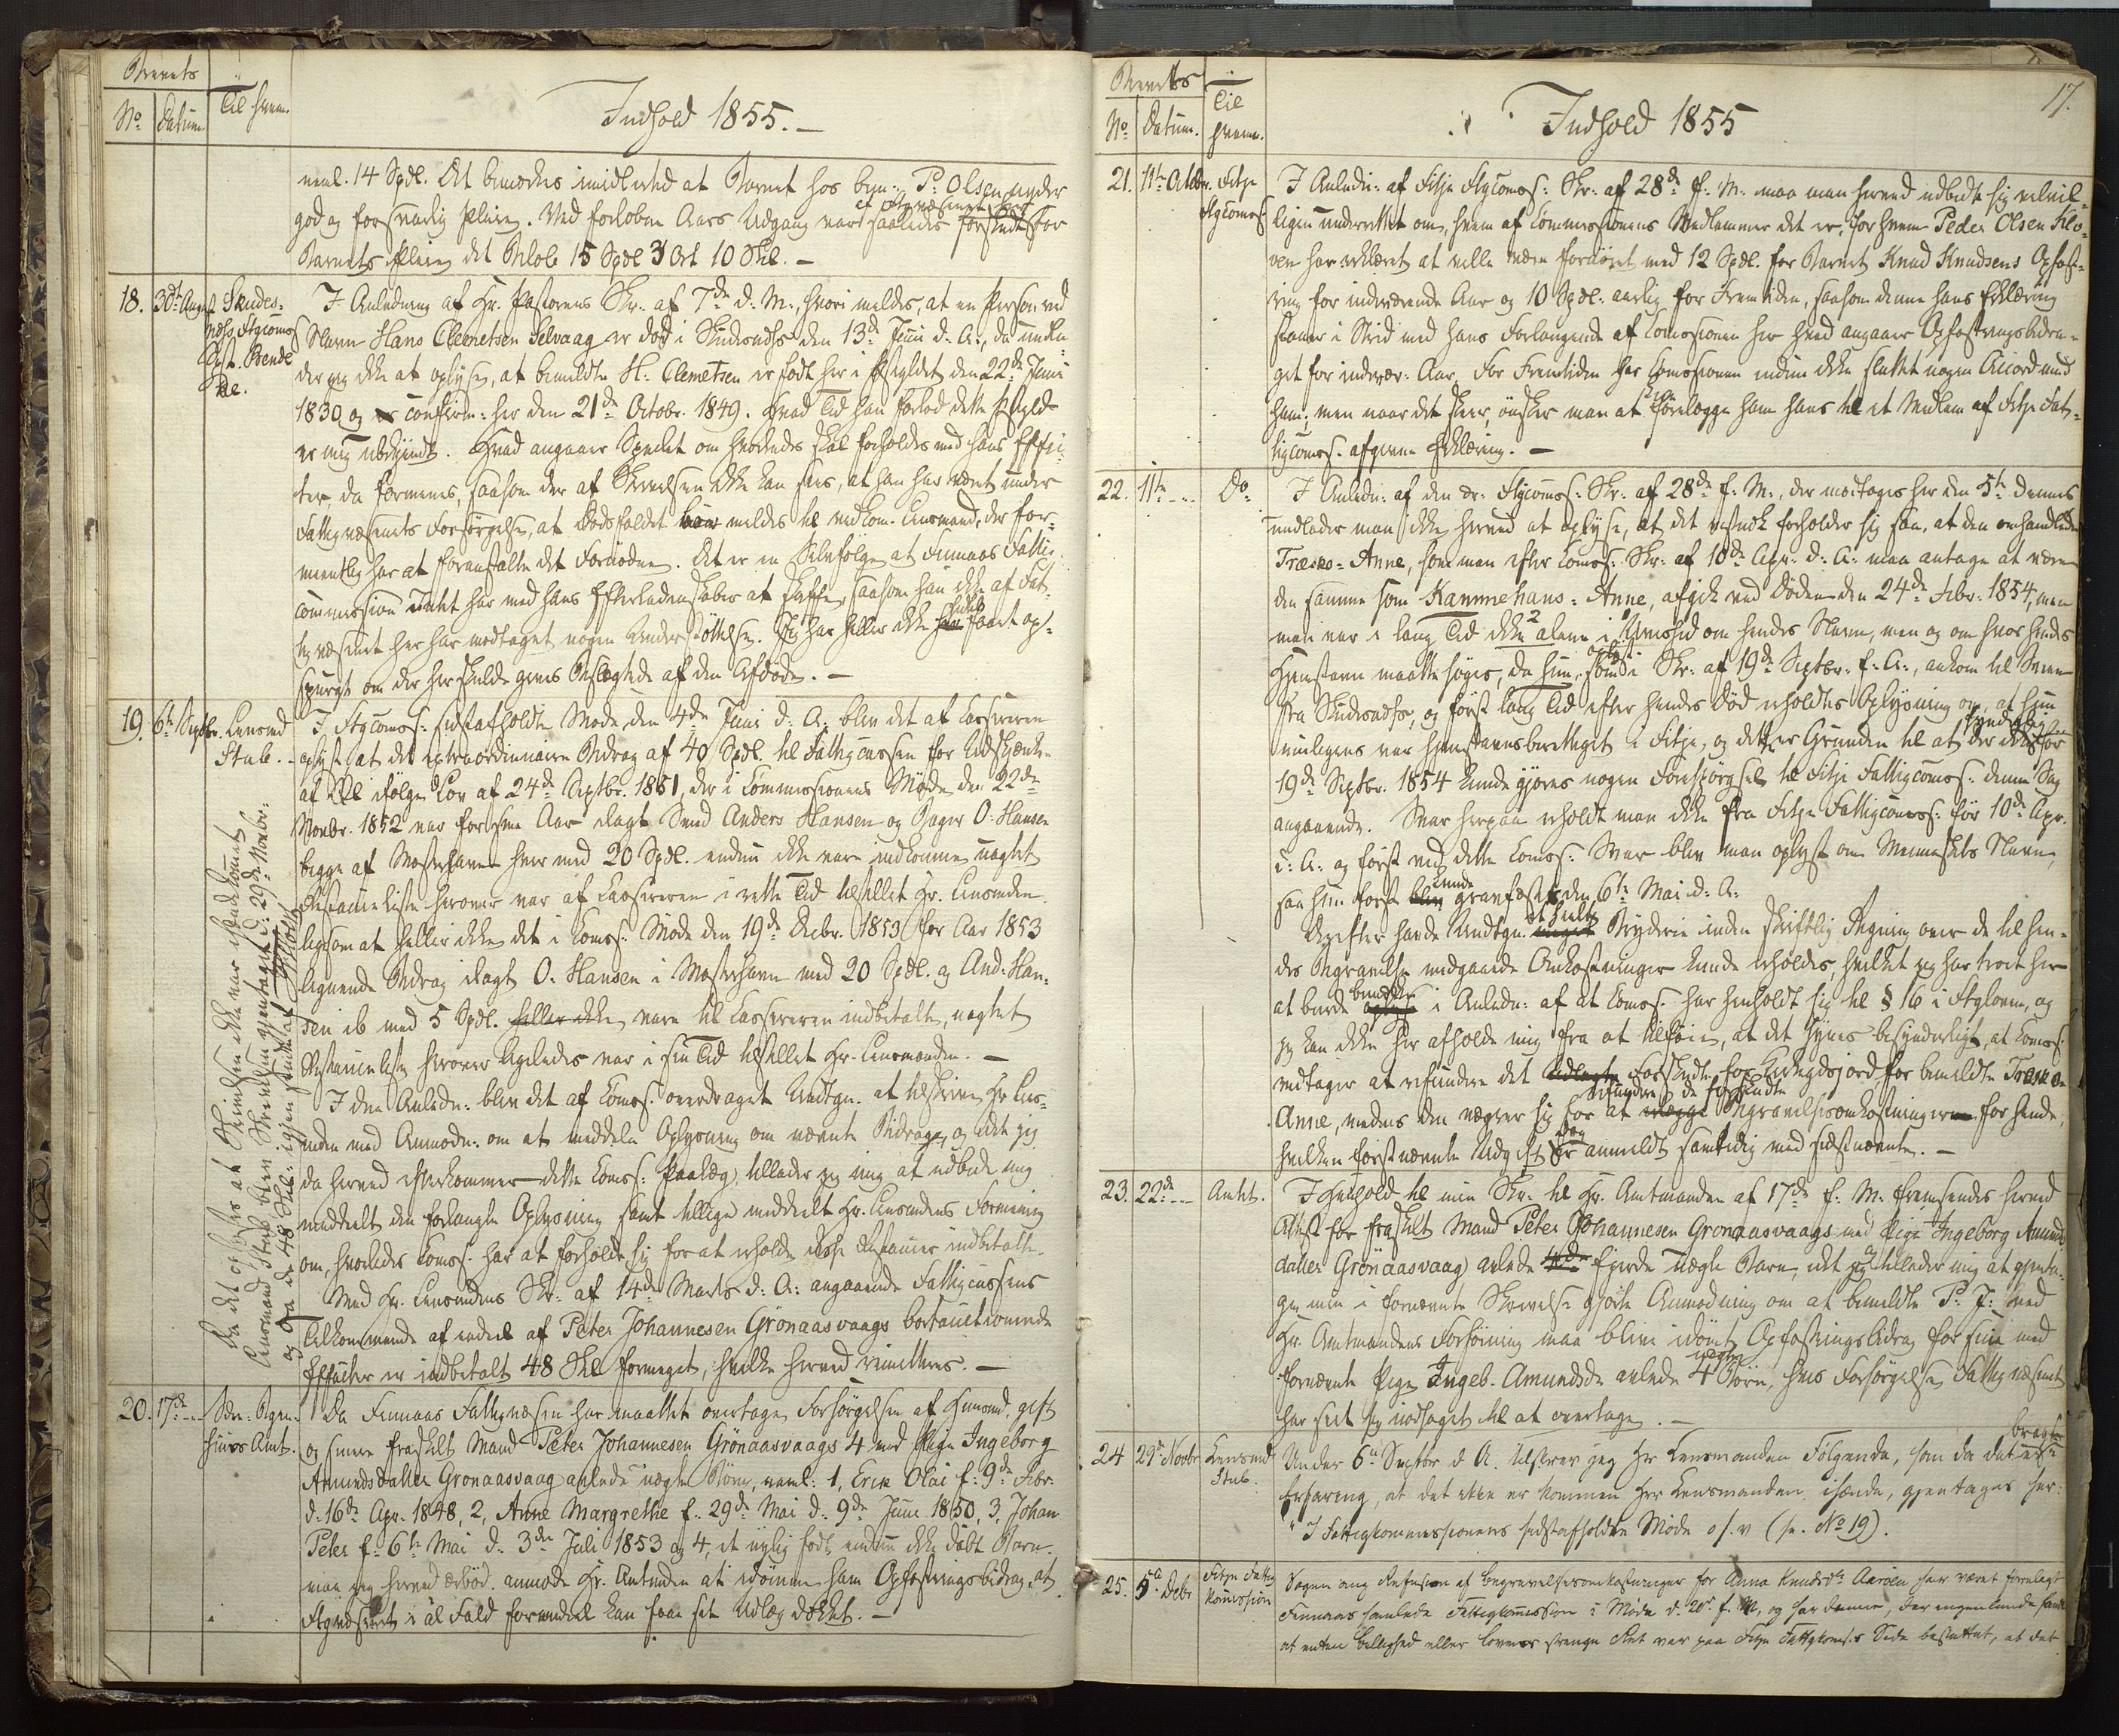 Brevets
No Datum Til hvem.
Indhold 1855.—
neml. 14 Spdl. Det bemærkes imidlertid at Barnet hos bem: P: Olsen nyder
god og forsvarlig Pleie. Ved forløbne Aars Udgang var saaledes af Ftgvæsenet forskudt for
Barnets Pleie det Beløb 15 Spdl 3 Ort 10 Skil.—
18. 30te August Skudesnæs Ftgcomss
I Anledning af Hr. Pastorens Skr. af 7de d: M:, hvori meldes, at en Person ved
Navn Hans Clemetsen Selvaag er død i Skudesnæs den 13de Juni d: A:, da undla-
der jeg ikke at oplyse, at bemeldte H: Clemetsen er født her i Pgjeldet den 22de Juni
1830 og confirm: her den 21de Octobr. 1849. Hvad Tid han forlod dette Pgjeld
er mig ubekjendt. Hvad angaaer Spmalet om hvorledes skal forholdes med hans Effec-
ter, da formenes, saasom der af Skrivelsen ikke kan sees, at han har været under
Fattigvæsenets Forsørgelse, at Dødsfaldet bør meldes til vedkom. Lensmand, der for-
mentlig har at foranstalte det Fornødne. Det er en Selvfølge at Finnaas Fattig-
commission Intet har med hans Efterladenskaber at skaffe, saasom han ikke af Fat-
tigvæsenet her har modtaget nogen Understøttelse. Jeg har heller ikke faaet op-
spurgt om der her skulde gives Beslægtede af den Afdøde.—
19. 6te Septbr. Lensmd Stub.
I Ftgcomss: sidstafholdte Møde den 4de Juni d: A: blev det af Cassereren
oplyst at det extraordinaire Bidrag af 40 Spdl. til Fattigcassen for Udskjænkn.
af Øl ifølge Lov af 24de Septbr. 1851, der i Commissionens Møde den 22de
Novbr. 1852 var for samme Aar ilagt Smed Anders Hansen og Bager O: Hansen
begge af Mosterhavn hver med 20 Spdl. endnu ikke vare indkomne uagtet
Restanceliste herover var af Cassereren i rette Tid tilstillet Hr. Lensmden.
ligesom at heller ikke det i Comss: Møde den 19de Decbr. 1853 for Aar 1853
lignende Bidrag ilagt O: Hansen i Mosterhavn med 20 Spdl. og And: Han-
sen ib med 5 Spdl. heller ikke vare til Cassereren indbetalte, uagtet
Restanceliste herover ligeledes var i sin Tid tilstillet Hr. Lensmanden.—
I den Anledn: blev det af Comss. overdraget Undtgn. at tilskrive Hr Lens-
mden med Anmodn: om at meddele Oplysning om nævnte Bidrage, og idet jeg
da herved efterkommer dette Comss: Paalæg, tillader jeg mig at udbede mig
meddeelt den forlangte Oplysning samt tillige meddeelt Hr. Lensmdens Formening
om, hvorledes Comss: har at forholde sig for at erholde disse Restancer indbetalte.
Med Hr. Lensmdens Skr: af 14de Marts d: A: angaaende Fattigcassens
Tilkommende af endeel af Peter Johannesen Grønaasvaags bortauctionerede
Effecter er indbetalt 48 Skl formeget, hvilke herved remitteres.—
Da det oplystes at Skrivelsen ikke var ihændekommet
Lensmand Stub blev Skrivelsen gjentaget d: 29de Novbr:
og da de 48 Skil: igjen sendt af
20. 17de — Søn: Bgn: huus Amt.
Da Finnaas Fattigvæsen har maattet overtage Forsørgelsen af Husmd. gift
og senere fraskilt Mand Peter Johannesen Grönaasvaags 4 med Pige Ingeborg
Amundsdatter Grönaasvaag avlede uægte Børn, neml: 1, Erik Olai f: 9de Febr.
d: 16de Apr. 1848, 2, Anne Margrethe f: 29de Mai d: 9de Juni 1850, 3, Johan
Peter f: 6te Mai d: 3die Juli 1853 og 4, et nylig født, endnu ikke døbt Barn,
maa jeg herved ærbød. anmode Hr. Amtmden at idømme ham Opfostringsbidrag, at
Ftgvæsenet i al Fald forendeel kan faae sit Udlæg dækket.—
17.
Brevets
No Datum. Til hvem.
Indhold 1855
21. 11te Octbr. Fitje Ftgcomss
I Anledn: af Fitje Ftgcomss: Skr: af 28de f: M: maa man herved udbede sig velvil-
ligen underrettet om, hvem af Commissionens Medlemmer det er, for hvem Peder Olsen Klo-
ven har erklæret at ville være fornøiet med 12 Spdl. for Barnet Knud Knudsens Opfost-
ring for indeværende Aar og 10 Spdl: aarlig for Fremtiden, saasom denne hans Erklæring
staaer i Strid med hans Forlangende af Comissionen her hvad angaaer Opfostringsbidra-
get for indevær: Aar. For Fremtiden har Comissionen endnu ikke sluttet nogen Accord med
ham; men naar det skeer, ønsker man at forelægge ham hans til et Medlem af Fitje Fat-
tigcomss: afgivne Erklæring.—
22. 11te — Do
I Anledn: af den ær: Ftgcomss: Skr: af 28de f: M:, der modtoges her den 5te dennes
undlader man ikke herved at oplyse, at det rigtnok forholder sig saa, at den omhandlede
Træsko-Anne, som man efter Comss: Skr: af 10de Apr: d: A: maa antage at være
den samme som Kammehans-Anne, afgik ved Døden den 24de Febr: 1854, men
man var i lang Tid ikke alene i Uvished om hendes Navn, men og om hvor hendes
Hjemstavn maatte søges, da hun, som i Skr: af 19de Septbr: f: A:, ankom til Smeen
fra Skudesnæs, og først lang Tid efter hendes Død erholdtes Oplysning om, at hun
muligens var hjemstavnsberettiget i Fitje, og dette er Grunden til at der ikke før
19de Septbr. 1854 kunde gjøres nogen Forespørgsel til Fitje Fattigcomss: denne Sag
angaaende. Svar herpaa erholdt man ikke fra Fitje Fattigcomss: før 10de Apr.
d: A: og først ved dette Comss: Svar blev man oplyst om Menneskets Navn,
saa hun først kunde gravfæstes den 6te Mai d: A:
Derefter havde Undtgn. Bryderie inden skriftlig Regning over de til hen-
des Begravelse medgaaede Omkostninger kunde erholdes hvilket jeg har troet her
at burde bemærke i Anledn: af at Comss. har henholdt sig til § 16 i Ftgloven, og
jeg kan ikke her afholde mig fra at tilføie, at det synes besynderligt, at Comss:
vedtager at refundere det Forskudte for Kirkegdsjord for bemeldte Træsko
Anne, medens den vægrer sig for at refundere de forskudte Begravelsesomkostninger for hende,
hvilken førstnævnte Udgift dog er anmeldt samtidig med sidstnævnte.—
23. 22de — Amtet.
I Henhold til min Skr. til Hr. Amtmanden af 17de f: M: fremsendes herved
Attest for fraskilt Mand Peter Johannesen Grönaasvaags med Pige Ingeborg Amunds-
datter Grönaasvaag avlede fjerde uægte Barn, idet jeg tillader mig at gjenta-
ge min i fornævnte Skrivelse gjorte Anmodning om at bemeldte P: J: ved
Hr. Amtmandens Forføining maa blive idømt Opfostringsbidrag for sine med
fornævnte Pige Ingeb. Amundsdr avlede 4 uægte Børn, hvis Forsørgelse Fattigvæsenet
har seet sig nødsaget til at overtage.—
24 29de Novbr Lensmd Stub.
Under 6te Septbr d. A. tilskrev jeg Hr Lensmanden Følgende, som da det er bragt i
Erfaring, at det ikke er kommen Hrr Lensmanden ihænde, gjentages her:
"I Fattigkommissionens sidstafholdte Møde o. s. v (se. No 19).
25. 5te Decbr Fitje Fattig Kommission
Sagen ang. Refusion af begravelsesomkostninger for Anna Knudsdr Aarøen har været forelagt
Finnaas samlede Fattigkomission i Møde d. 20de f. M, og har denne, der ingenlunde fandt
at enten billighed eller lovens strenge Ret var paa Fitje Fattgkomss Side besluttet, at det